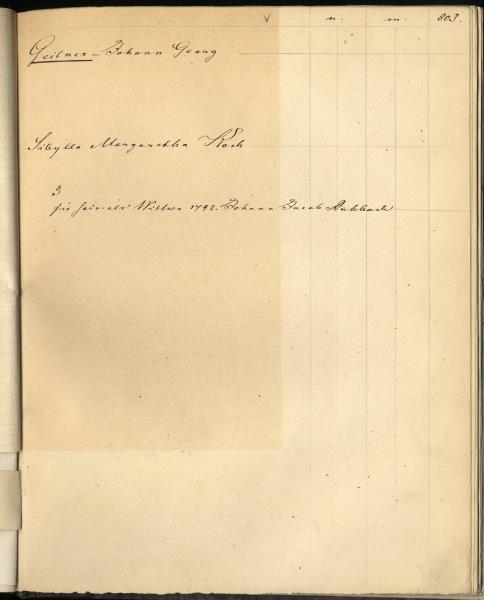 v n. m. 803.
Geilner Johann Georg
Sibylla Margaretha Koch
3
sie heir. als Wittwe 1742. Johann Jacob